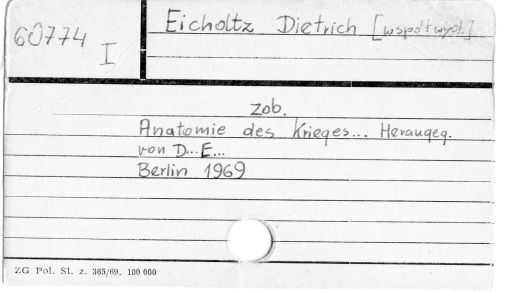 60774
I
Eicholtz Dietrich [współwyd.]
zob.
Anatomie des Krieges... Herausgeg.
von D... E...
Berlin 1969
ZG Pol. Śl. z. 365/69. 100 000